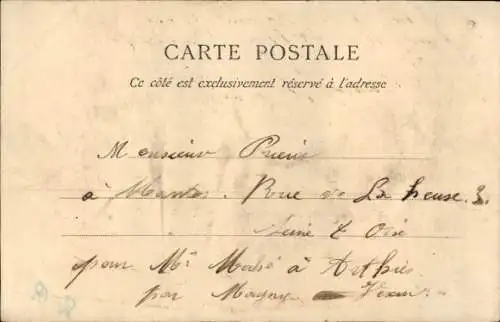 CARTE POSTALE
Ce côté est exclusivement réservé à l'adresse
Monsieur
à Mantes. Rue de La heuse. 3.
Seine & Oise
pour Mr Mahé à Arthies
par Magny Vexin